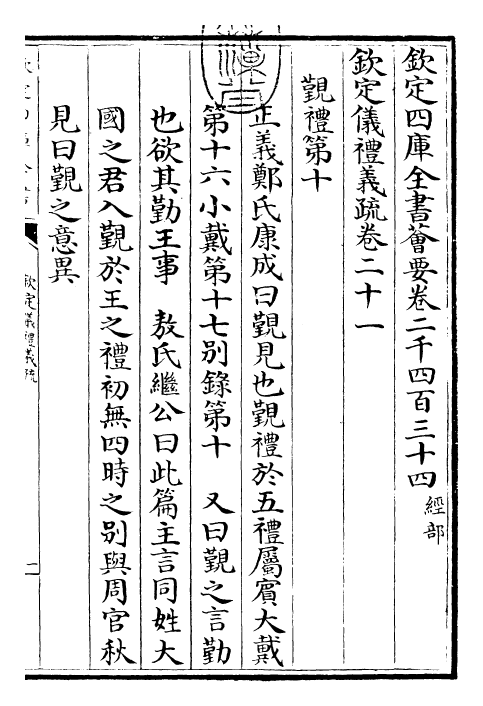 欽定四庫全書薈要卷二千四百三十四經部
欽定儀禮義疏卷二十一
覲禮第十
正義鄭氏康成曰覲見也覲禮於五禮屬賓大戴
第十六小戴第十七別錄第十　又曰覲之言勤
也欲其勤王事　敖氏繼公曰此篇主言同姓大
國之君入覲於王之禮初無四時之别與周官秋
見曰覲之意異
欽定儀禮義疏
一